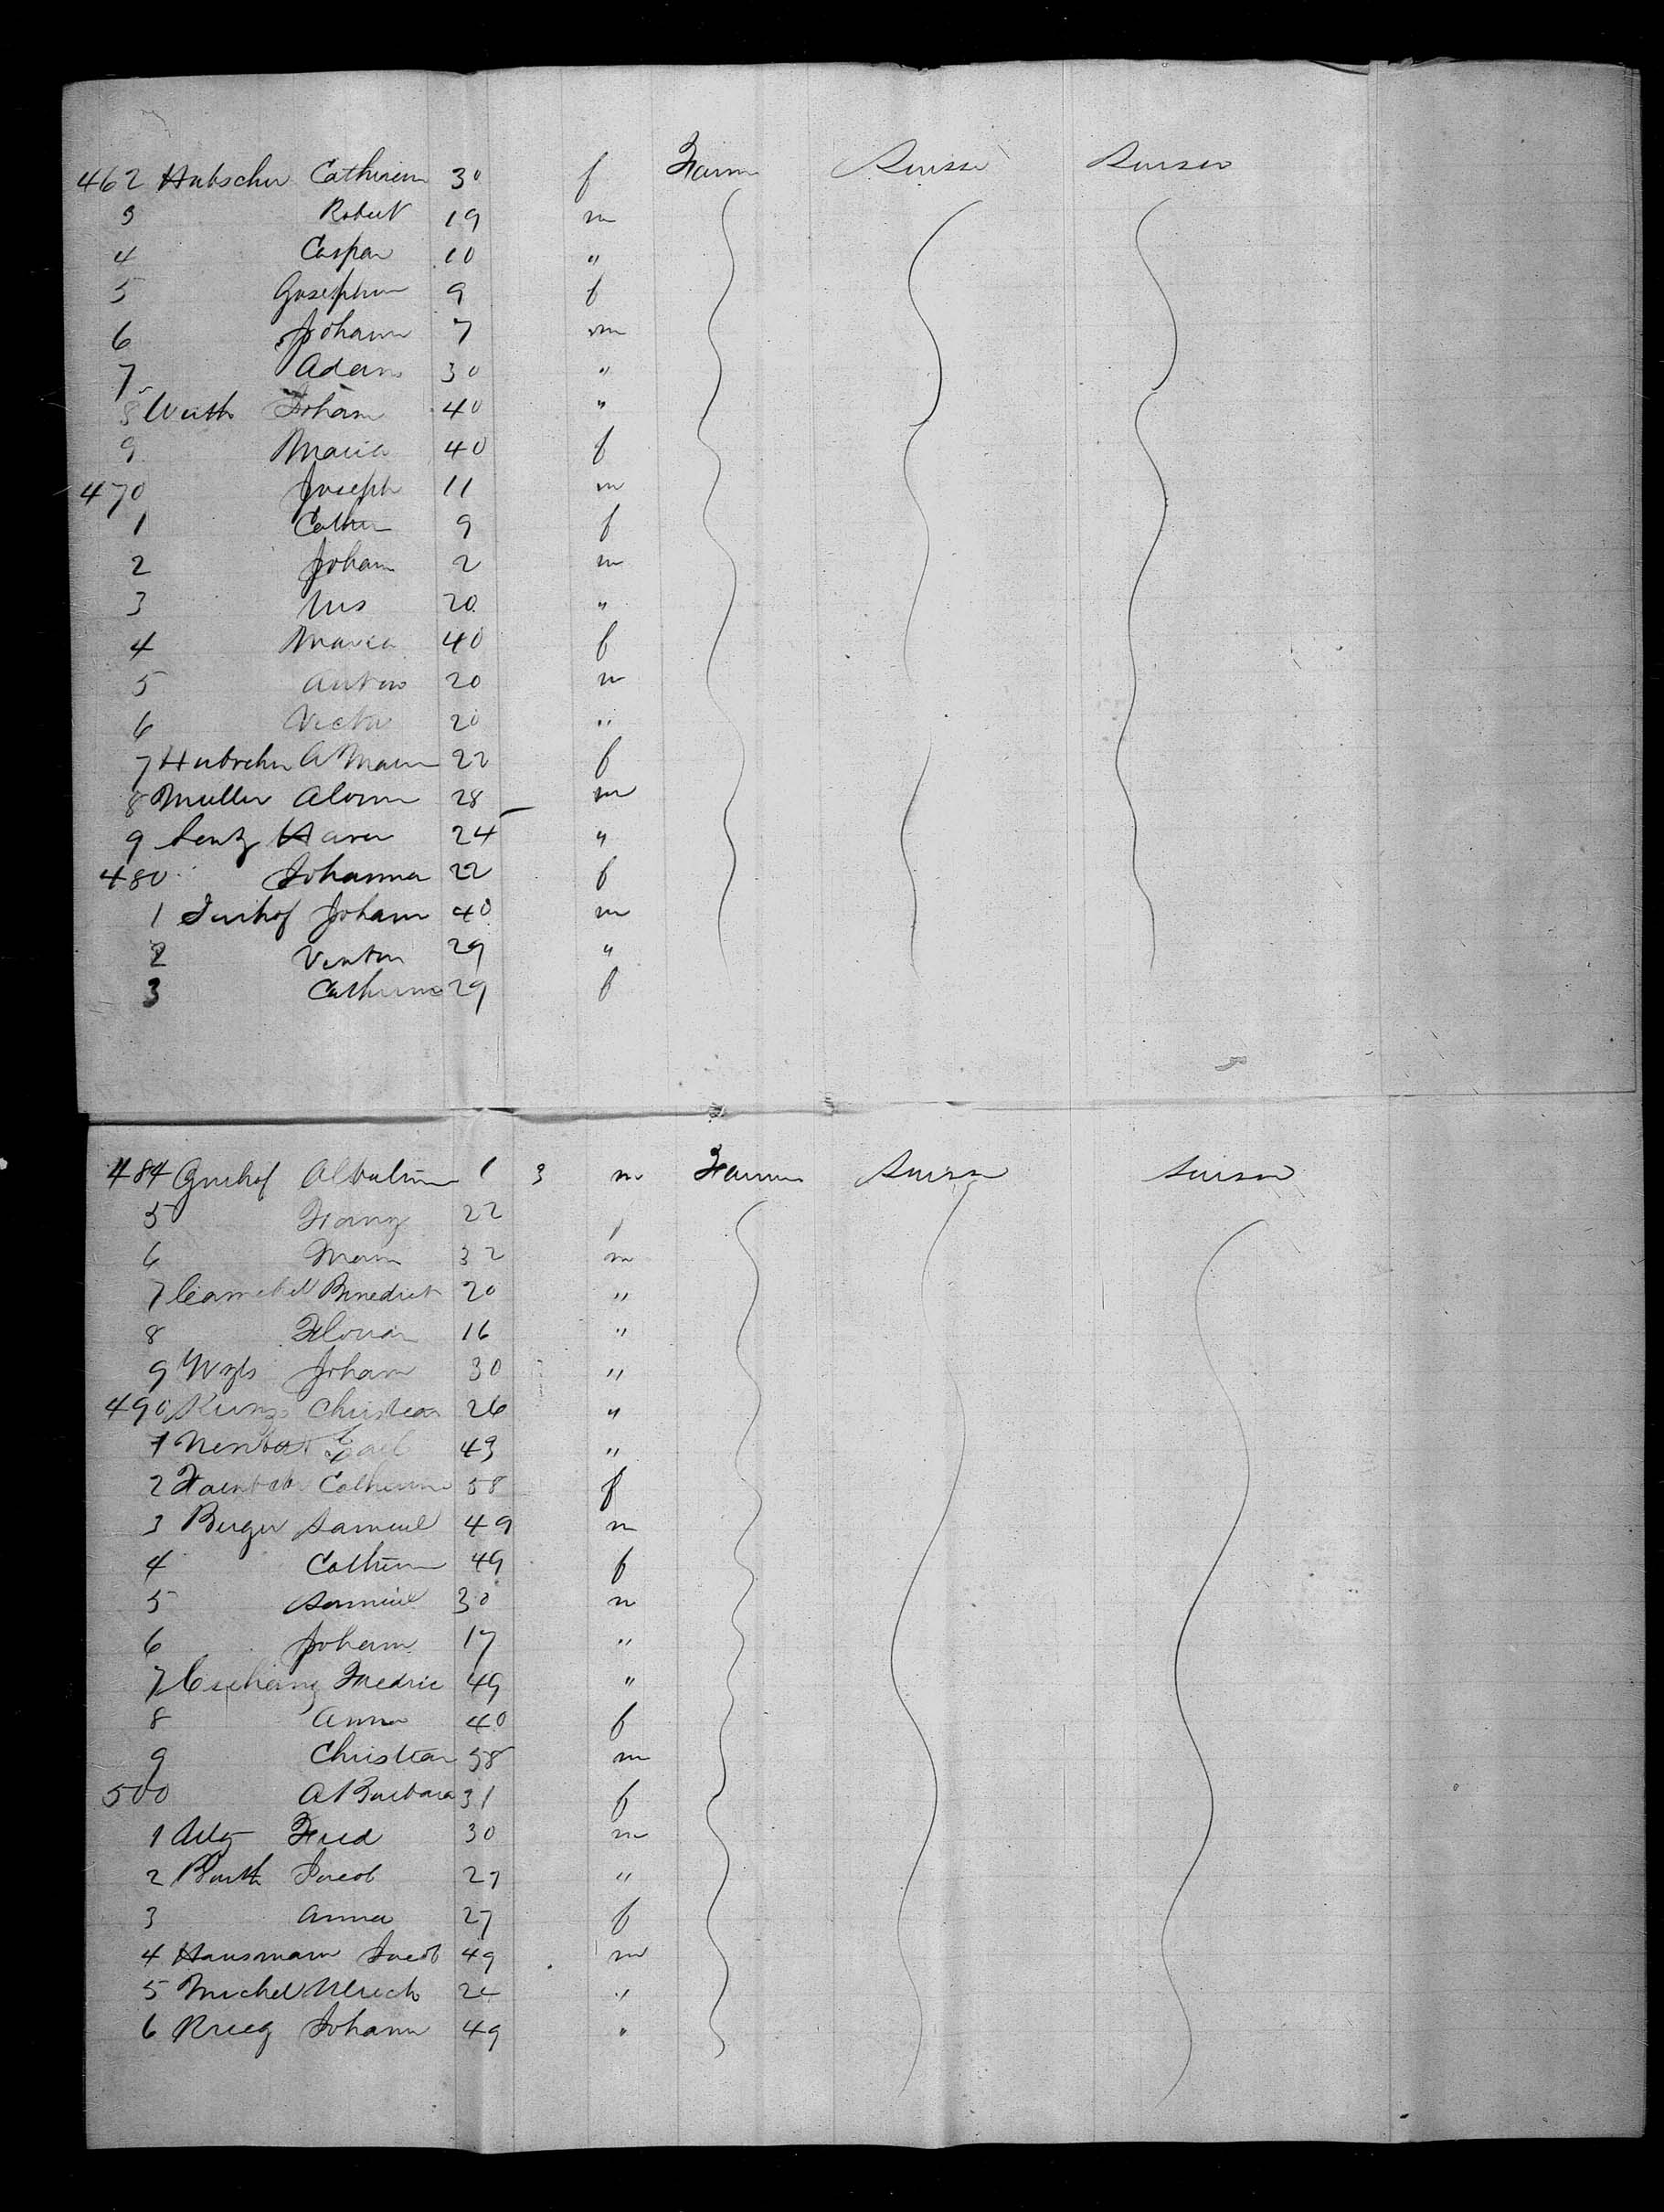 462 Hubscher Catharin 30 f Farm Suisse Suisse
3 Robert 19 m
4 Caspar 10 "
5 Josephin 9 f
6 Johann 7 m
7 Adam 30 "
8 Wirth Johann 40 "
9 Maria 40 f
470 Joseph 11 m
1 Cather 9 f
2 Johann 2 m
3 Urs 20 "
4 Maria 40 f
5 Anton 20 m
6 Victor 20 "
7 Hubscher A Maria 22 f
8 Muller 28 m
9 24 "
480 Johanna 22 f
1 Imhof Johann 40 m
2 29 "
3 Catharina 29 f
484 Imhof 1 3 m Farm Suisse Suisse
5 Franz 22 f
6 32 m
7 Benedict 20 "
8 Florian 16 "
9 Johann 30 "
490 Kunz Christian 26 "
1 43 "
2 Catharina 58 f
3 Berger Samuel 49 m
4 Catharin 49 f
5 Samuel 30 m
6 Johann 17 "
7 Fredric 49 "
8 Anna 40 f
9 Christian 38 m
500 A Barbara 31 f
1 Fred 30 m
2 Barth Jacob 27 "
3 Anna 27 f
4 Hausmann Jacob 49 m
5 Michel Ulrich "
6 Krieg Johann 49 "